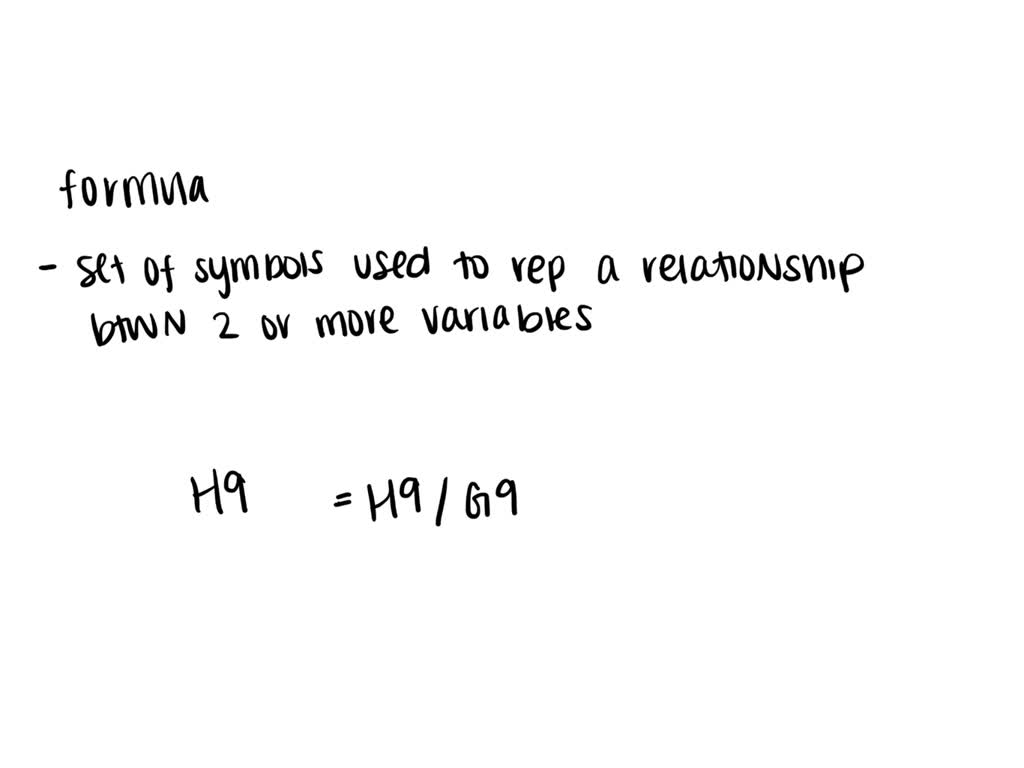 formula
- set of symbols used to rep a relationship
btwn 2 or more variables
H9 = H9/G9